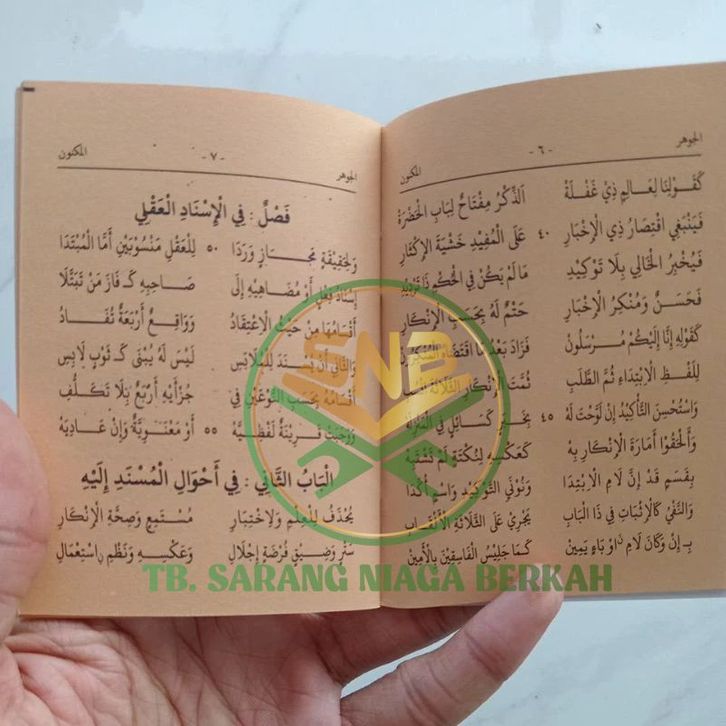 الجوهر - ٦ - المكنون
كَقَوْلِنَا لِعَالِمٍ ذِي غَفْلَةْ الذِّكْرُ مِفْتَاحٌ لِبَابِ الْحَضْرَةْ
فَيَنْبَغِي اقْتِصَارُ ذِي الْإِخْبَارِ ٤٠ عَلَى الْمُفِيدِ خَشْيَةَ الْإِكْثَارِ
فَيُخْبِرُ الْخَالِي بِلَا تَوْكِيدِ مَا لَمْ يَكُنْ فِي الْحُكْمِ ذَا تَرْدِيدِ
فَحَسَنٌ وَمُنْكِرُ الْإِخْبَارِ حَتْمٌ لَهُ بِحَسَبِ الْإِنْكَارِ
كَقَوْلِهِ إِنَّا إِلَيْكُمْ مُرْسَلُونْ فَزَادَ بَعْدُ مَا اقْتَضَاهُ الْمُنْكِرُونْ
لِلَفْظِ الْاِبْتِدَاءِ ثُمَّ الطَّلَبِ ثُمَّتَ الْإِنْكَارِ الثَّلَاثَةَ
وَاسْتُحْسِنَ التَّأْكِيدُ إِنْ لَوَّحْتَ لَهُ ٤٥ بِخَبَرٍ كَسَائِلٍ فِي الْمَنْزِلَةْ
وَأَلْحَقُوا أَمَارَةَ الْإِنْكَارِ بِهِ كَعَكْسِهِ لِنُكْتَةٍ لَمْ تَشْتَبِهْ
بِقَسَمٍ قَدْ إِنَّ لَامِ الْاِبْتِدَا وَنُونَيِ التَّوْكِيدِ وَاسْمٍ أَكَّدَا
وَالنَّفْيُ كَالْإِثْبَاتِ فِي ذَا الْبَابِ يَجْرِي عَلَى الثَّلَاثَةِ الْأَلْقَابِ
بِـ إِنْ وَكَانَ لَامِ نِ اوْ بَاءِ يَمِينْ كَمَا جَلِيسُ الْفَاسِقِينَ بِالْأَمِينْ
الجوهر - ٧ - المكنون
فَصْلٌ : فِي الْإِسْنَادِ الْعَقْلِي
وَلِحَقِيقَةٍ مَجَازٍ وَرَدَا ٥٠ لِلْعَقْلِ مَنْسُوبَيْنِ أَمَّا الْمُبْتَدَا
إِسْنَادُ فِعْلٍ أَوْ مُضَاهِيهِ إِلَى صَاحِبِهِ كَـ فَازَ مَنْ تَبَتَّلَا
أَقْسَامُهَا مِنْ حَيْثُ الْاِعْتِقَادُ وَوَاقِعٍ أَرْبَعَةٌ تُفَادُ
وَالثَّانِ أَنْ يُسْنَدَ لِلْمُلَابِسِ لَيْسَ لَهُ يُبْنَى كَـ ثَوْبٍ لَابِسِ
أَقْسَامُهُ بِحَسَبِ النَّوْعَيْنِ فِي جُزْأَيْهِ أَرْبَعٌ بِلَا تَكَلُّفِ
وَوَجَبَتْ قَرِينَةٌ لَفْظِيَّةْ ٥٥ أَوْ مَعْنَوِيَّةٌ وَإِنْ عَادِيَّةْ
الْبَابُ الثَّانِي : فِي أَحْوَالِ الْمُسْنَدِ إِلَيْهِ
يُحْذَفُ لِلْعِلْمِ وَلِاخْتِبَارِ مُسْتَمِعٍ وَصِحَّةِ الْإِنْكَارِ
سَتْرٍ وَضِيقِ فُرْصَةٍ إِجْلَالِ وَعَكْسِهِ وَنَظْمِ نِ اسْتِعْمَالِ
SNB
TB. SARANG NIAGA BERKAH